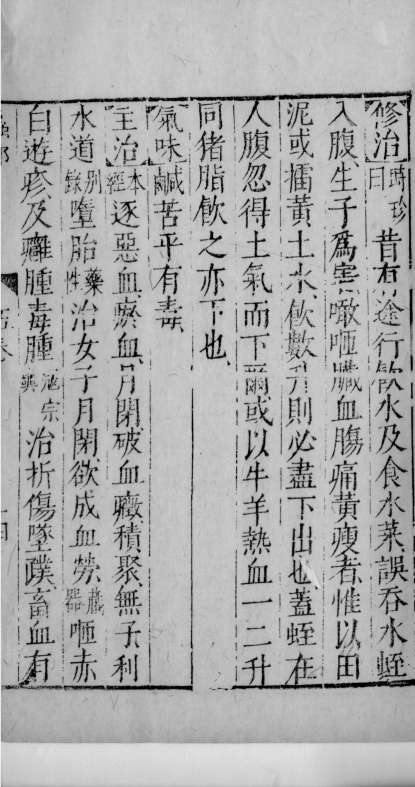 修治時珍曰昔有途行飲水及食水菜誤吞水蛭
入腹生子爲害噉咂臟血膓痛黃瘦者惟以田
泥或擂黃土水飲數升則必盡下出也蓋蛭在
人腹忽得土氣而下爾或以牛羊熱血一二升
同猪脂飲之亦下也
氣味鹹苦平有毒
主治本經逐惡血瘀血月閉破血癥積聚無子利
水道别錄墮胎藥性治女子月閉欲成血勞藏器咂赤
白遊疹及癰腫毒腫
治折傷墜蹼畜血有